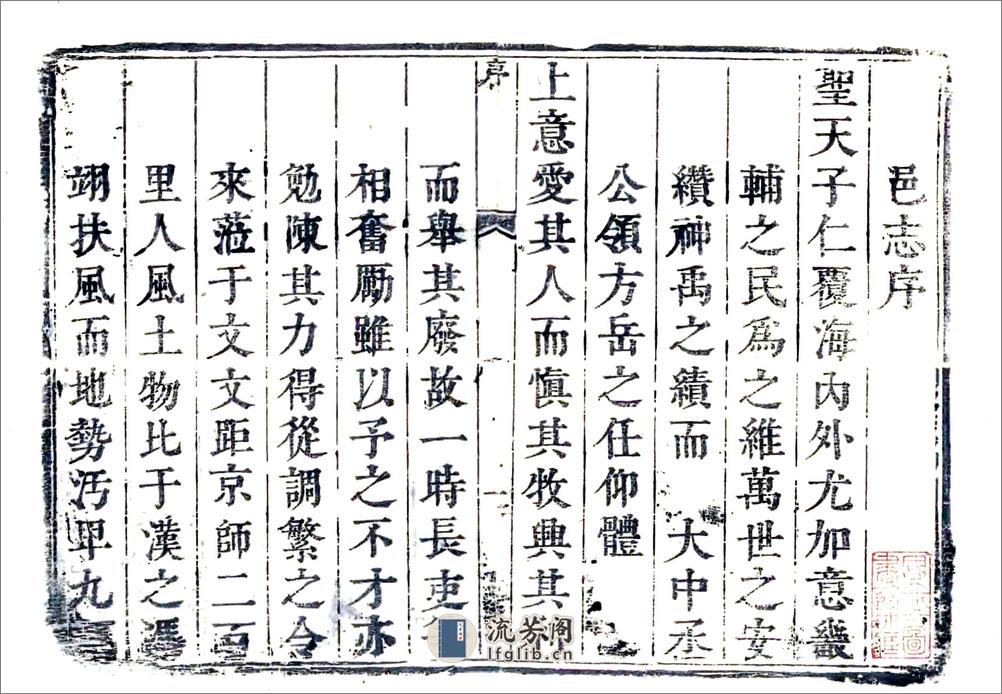 邑志序
聖天子仁覆海內外尤加意畿
輔之民爲之維萬世之安
纘神禹之績而　大中丞
公領方岳之任仰體
上意愛其人而愼其牧興其
而舉其廢故一時長吏
相奮勵雖以予之不才亦
勉陳其力得從調繁之令
來蒞于文文距京師二百
里人風土物比于漢之馮
翊扶風而地勢汚卑九
序
一
流芳阁
lfglib.cn